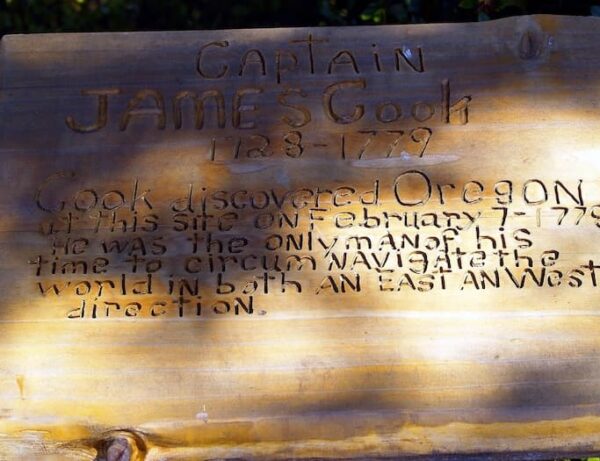 Captain
JAMES Cook
1728-1779
Cook discovered OregoN
at this site oN February 7-1779
He was the oNly maN of his
time to circumNAVigate the
world iN both AN EAST ANWest
directioN.